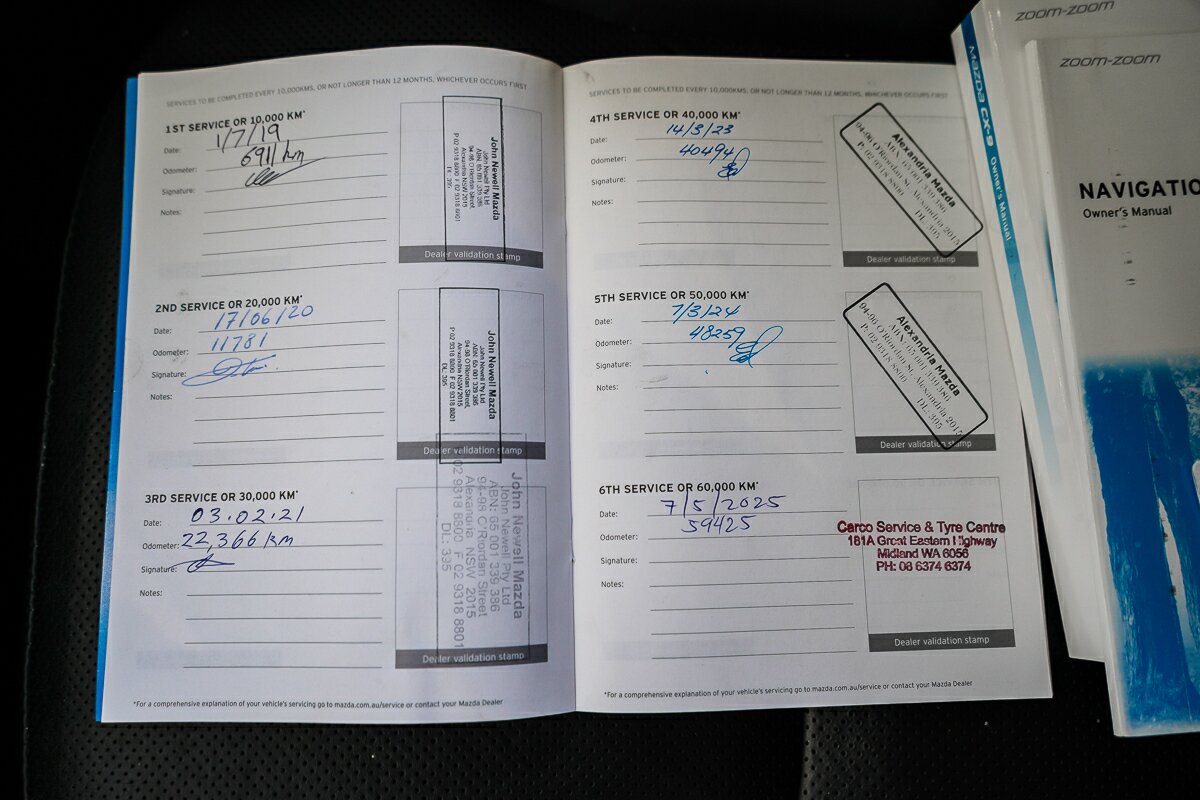 SERVICES TO BE COMPLETED EVERY 10,000KMS, OR NOT LONGER THAN 12 MONTHS, WHICHEVER OCCURS FIRST
1ST SERVICE OR 10,000 KM*
Date: 1/7/19
Odometer: 6911 km
Signature:
Notes:
John Newell Mazda
John Newell Pty Ltd
ABN: 65 001 339 386
94-98 O'Riordan Street,
Alexandria NSW 2015
P 02 9318 8800 F 02 9318 8801
DL: 395
Dealer validation stamp
2ND SERVICE OR 20,000 KM*
Date: 17/06/20
Odometer: 11781
Signature:
Notes:
John Newell Mazda
John Newell Pty Ltd
ABN: 65 001 339 386
94-98 O'Riordan Street,
Alexandria NSW 2015
P 02 9318 8800 F 02 9318 8801
DL: 395
Dealer validation stamp
3RD SERVICE OR 30,000 KM*
Date: 03.02.21
Odometer: 22,366 km
Signature:
Notes:
John Newell Mazda
John Newell Pty Ltd
ABN: 65 001 339 386
94-98 O'Riordan Street
Alexandria NSW 2015
02 9318 8800 F 02 9318 8801
DL: 395
Dealer validation stamp
*For a comprehensive explanation of your vehicle's servicing go to mazda.com.au/service or contact your Mazda Dealer
SERVICES TO BE COMPLETED EVERY 10,000KMS, OR NOT LONGER THAN 12 MONTHS, WHICHEVER OCCURS FIRST
4TH SERVICE OR 40,000 KM*
Date: 14/3/23
Odometer: 40494
Signature:
Notes:
Alexandria Mazda
ABN: 65 001 339 386
94-98 O'Riordan St, Alexandria 2015
P: 02 9318 8800
DL: 395
Dealer validation stamp
5TH SERVICE OR 50,000 KM*
Date: 7/3/24
Odometer: 48259
Signature:
Notes:
Alexandria Mazda
ABN: 65 001 339 386
94-98 O'Riordan St, Alexandria 2015
P: 02 9318 8800
DL: 395
Dealer validation stamp
6TH SERVICE OR 60,000 KM*
Date: 7/5/2025
Odometer: 59425
Signature:
Notes:
Carco Service & Tyre Centre
181A Great Eastern Highway
Midland WA 6056
PH: 08 6374 6374
Dealer validation stamp
*For a comprehensive explanation of your vehicle's servicing go to mazda.com.au/service or contact your Mazda Dealer
zoom-zoom
MAZDA CX-9 Owner's Manual
zoom-zoom
NAVIGATIO
Owner's Manual